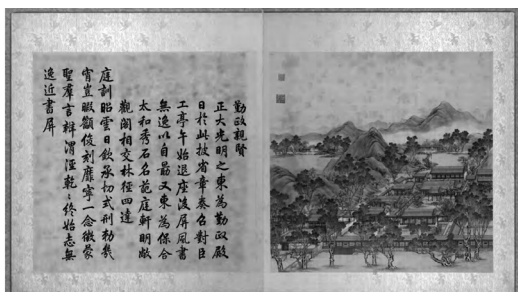 勤政親賢
正大光明之東為勤政殿
日於此披省章奏召對臣
工亭午始退座後屏風書
無逸以自勖又東為保合
太和秀石名葩庭軒明敞
觀閣相交林徑四達
庭訓昭雲日欽承切式刑勑幾
宵豈暇顓俊刻靡寧一念徵蒙
聖羣言辯渭涇乾乾終始志無
逸近書屏